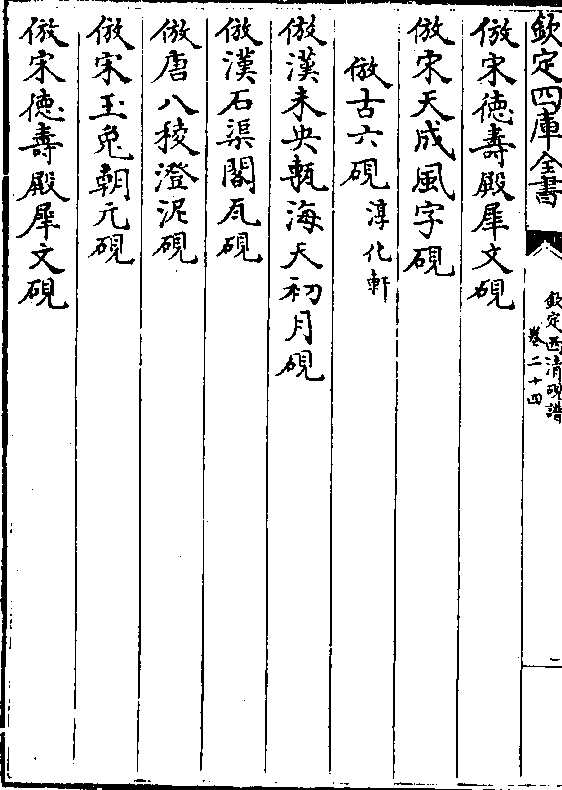 欽定四庫全書
欽定西清硯譜
卷二十四
二
倣宋德壽殿犀文硯
倣宋天成風字硯
倣古六硯 淳化軒
倣漢未央甎海天初月硯
倣漢石渠閣瓦硯
倣唐八稜澄泥硯
倣宋玉兔朝元硯
倣宋德壽殿犀文硯